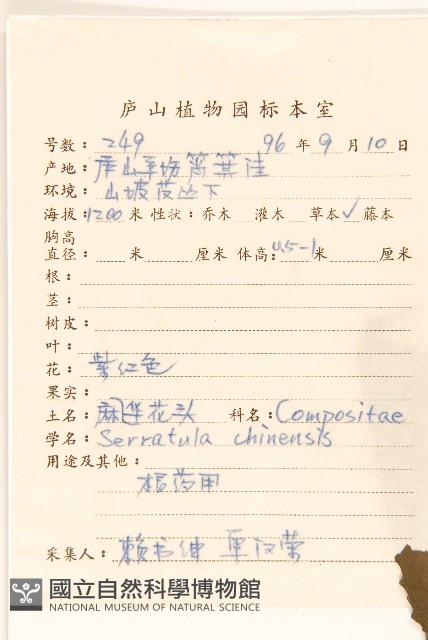 庐山植物园标本室
号数: 249 96年9月10日
产地: 庐山草坊筲箕洼
环境: 山坡茂丛下
海拔: 1200米 性状: 乔木 灌木 草本✓ 藤本
胸高
直径: 米 厘米 体高: 0.5-1米 厘米
根:
茎:
树皮:
叶:
花: 紫红色
果实:
土名: 麻 花头 科名: Compositae
学名: Serratula chinensis
用途及其他:
根药用
采集人: 赖书绅 单汉荣
國立自然科學博物館
NATIONAL MUSEUM OF NATURAL SCIENCE